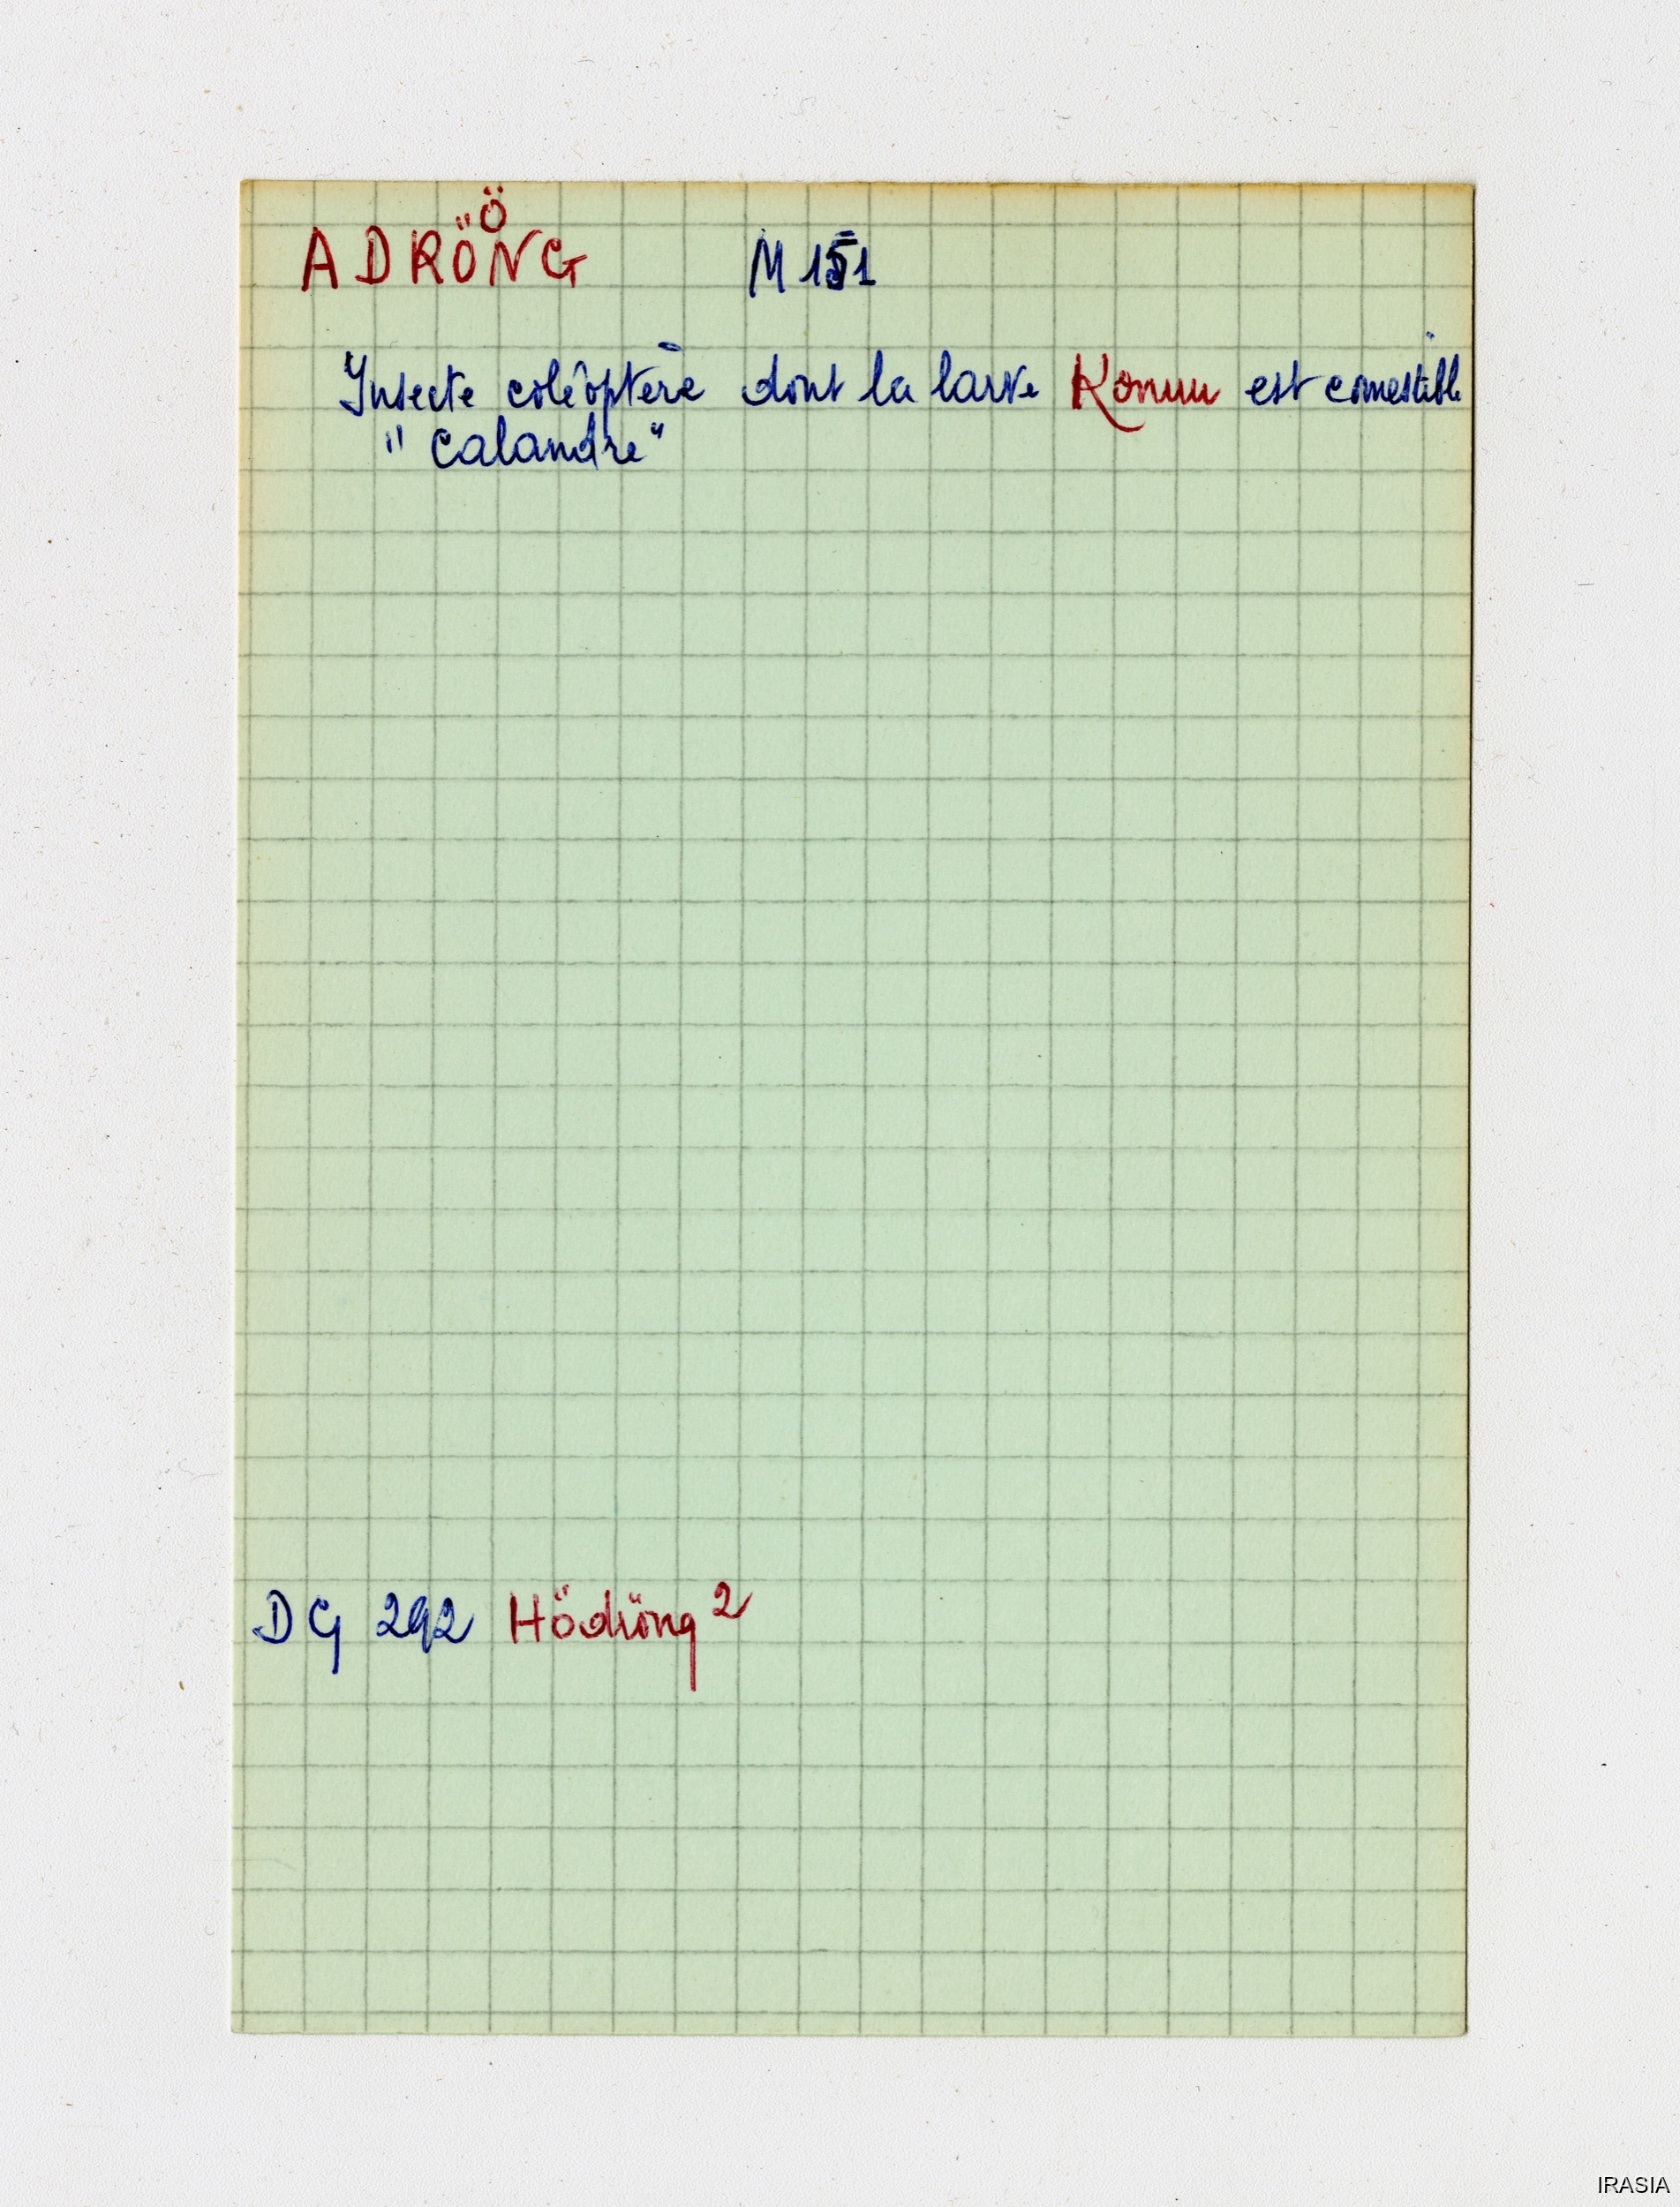 Ö
ADRÖNG M 151
Insecte coléoptère dont la larve Konuu est comestible
"Calandre"
DG 292 Hödröng 2
IRASIA